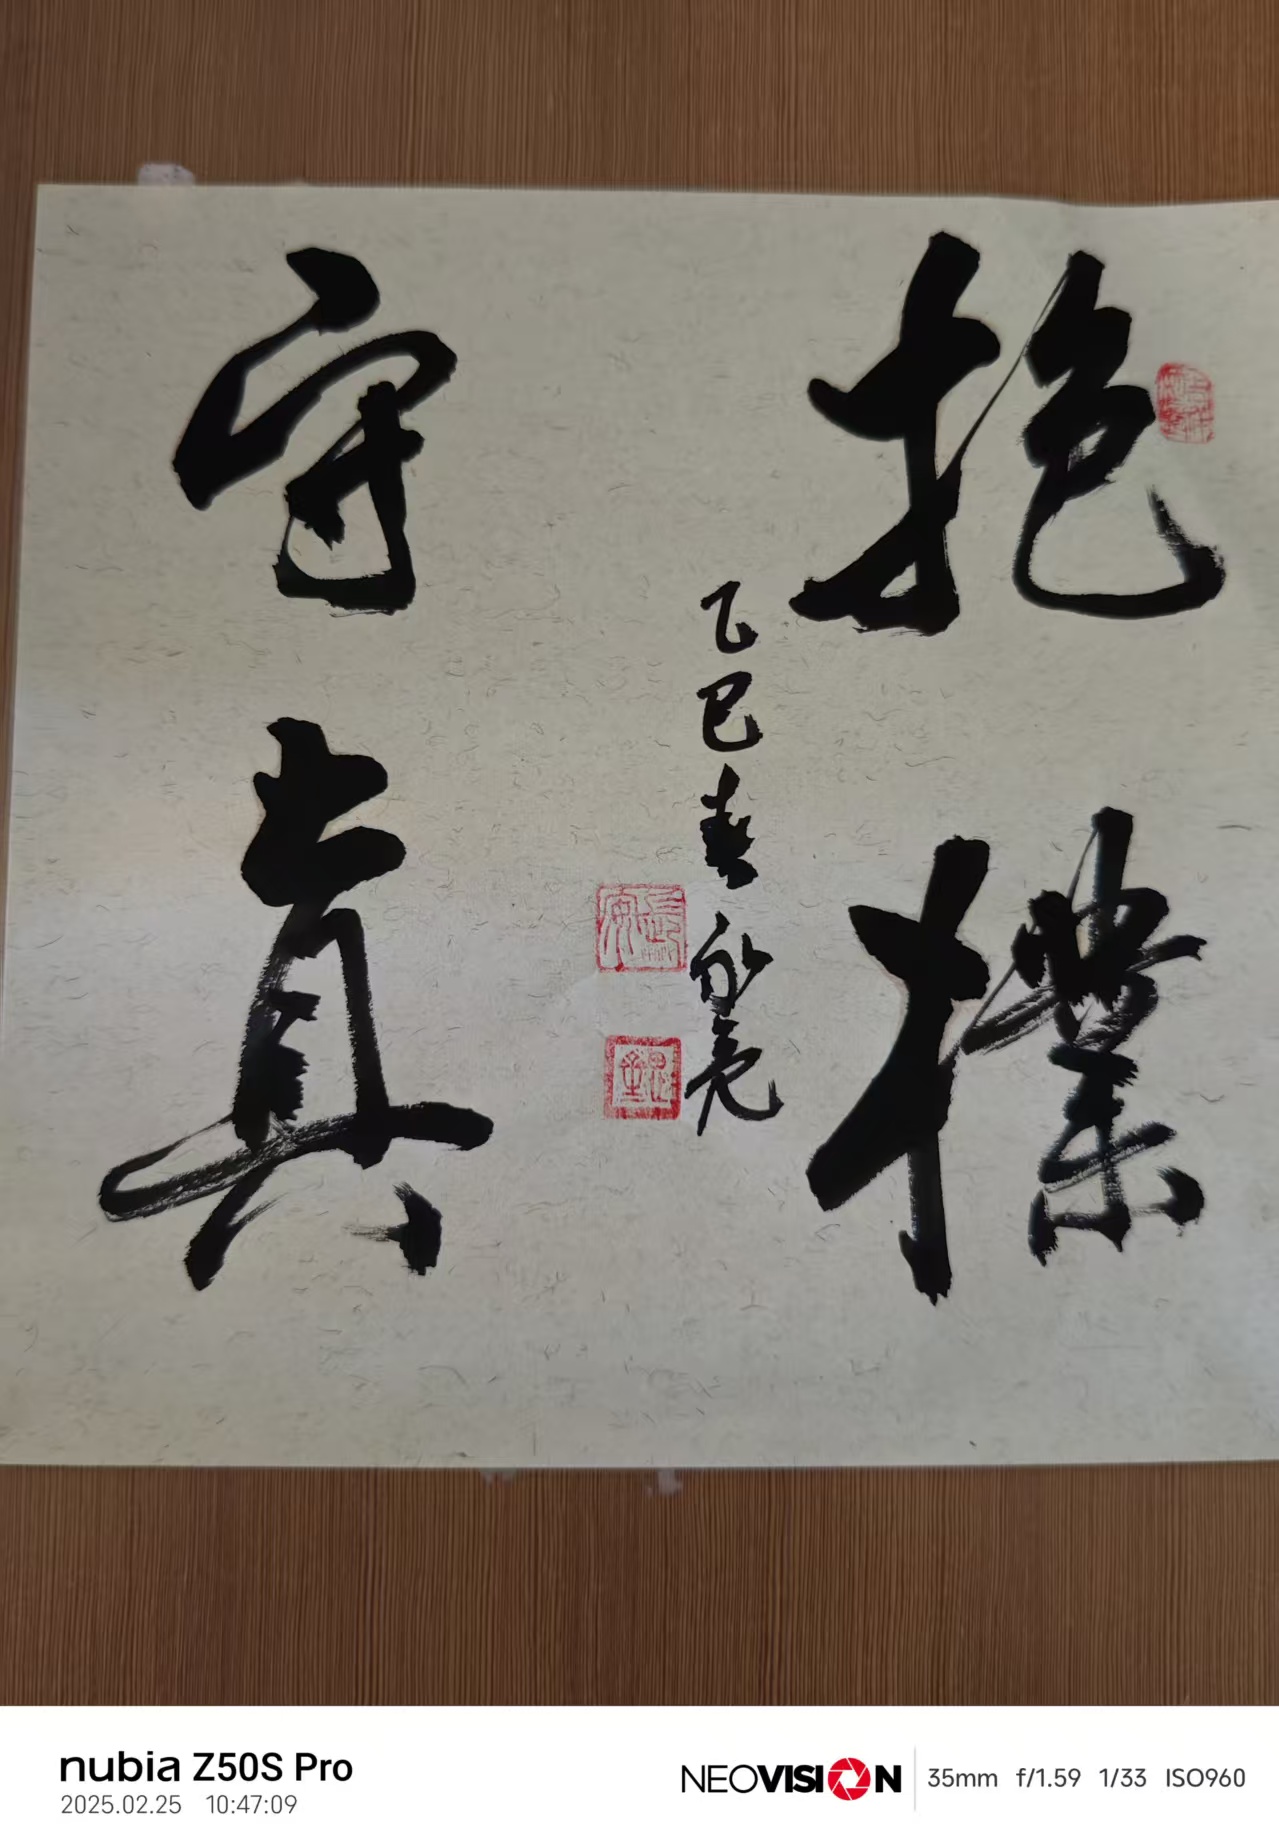 抱樸
乙巳春永亮
守真
nubia Z50S Pro
2025.02.25 10:47:09
NEOVISION
35mm f/1.59 1/33 ISO960